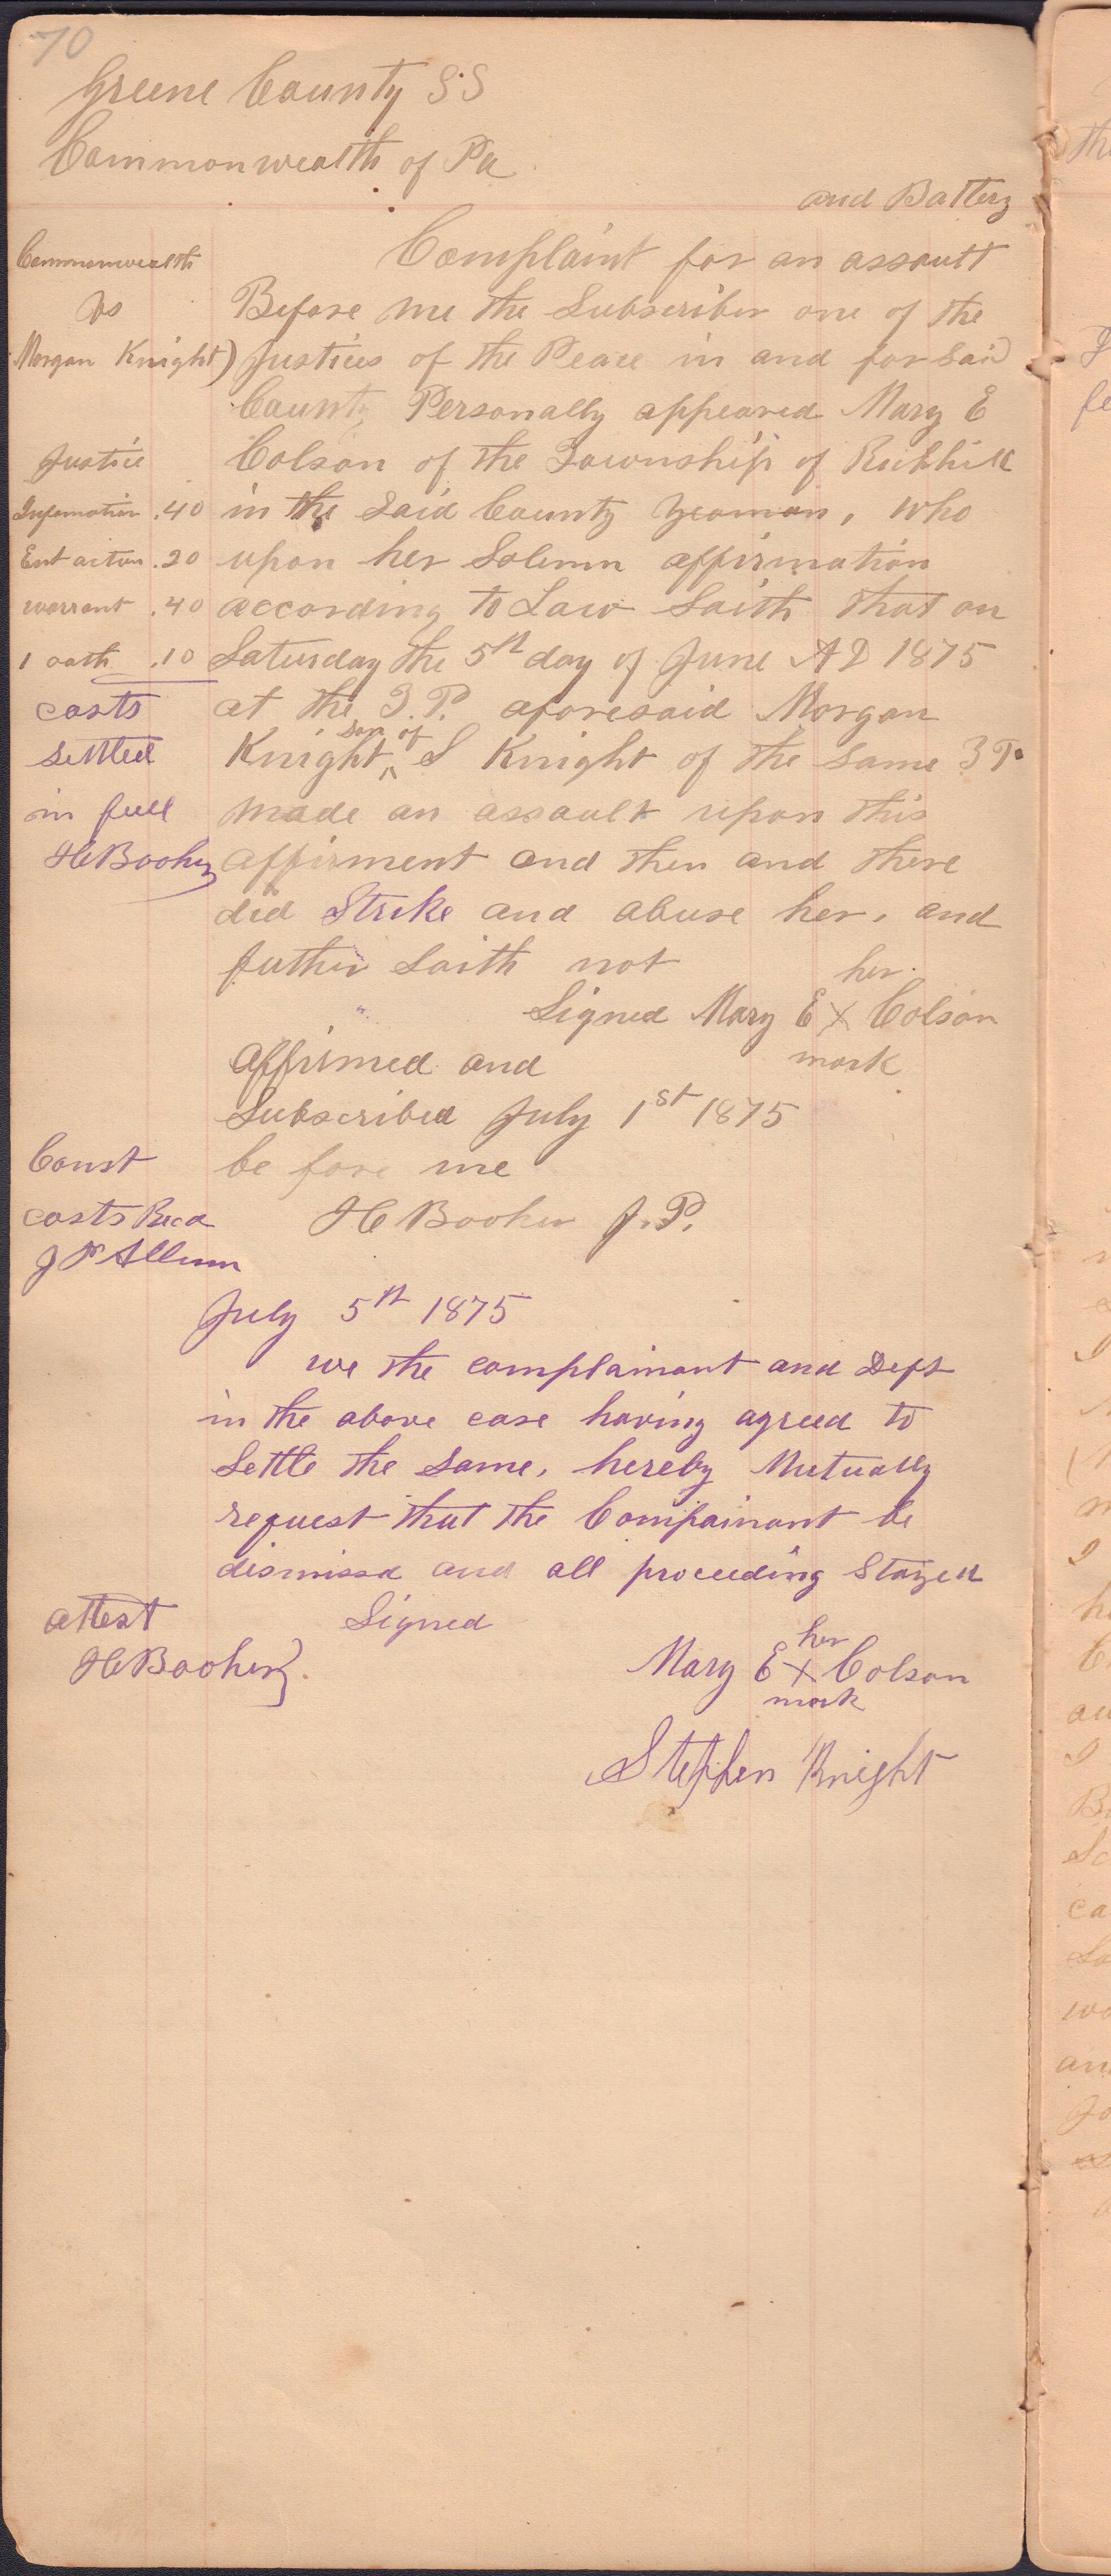 70
Greene County SS
Commonwealth of Pa
and Battery
Commonwealth
vs
Morgan Knight)
Complaint for an assault
Before me the Subscriber one of the
Justices of the Peace in and for Said
County Personally appeared Mary E
Colson of the Township of Richhill
in the Said County yeoman, who
upon her Solemn affirmation
according to Law Saith that on
Saturday the 5th day of June AD 1875
at the T.P. aforesaid Morgan
son of
Knight, ^ S Knight of the Same T P.
made an assault upon this
affirment and then and there
did Strike and abuse her, and
futher Saith not
her
Signed Mary E X Colson
mark
affirmed and
Subscribed July 1st 1875
be fore me
H C Booher J.P.
Justice
Information .40
Ent action .20
warrant .40
1 oath .10
costs
Settled
in full
H C Booher
Const
costs Recd
July 5th 1875
we the complainant and Deft
in the above case having agreed to
Settle the Same, hereby Mutually
request that the Compainant be
dismissd and all proceeding Stayed
Signed
attest
H C Booher}
her
Mary E X Colson
mark
Stephen Knight